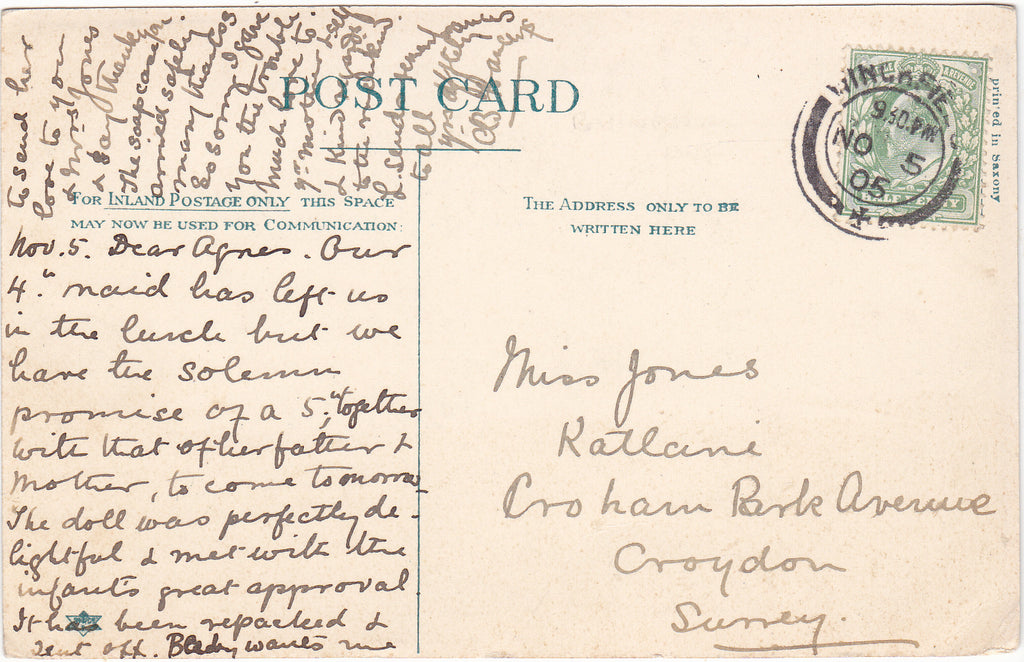 POST CARD
FOR INLAND POSTAGE ONLY THIS SPACE
MAY NOW BE USED FOR COMMUNICATION:
THE ADDRESS ONLY TO BE
WRITTEN HERE
printed in Saxony
9.30.PM
NO 5
05
Nov. 5. Dear Agnes. Our
4th maid has left us
in the lurch but we
have the solemn
promise of a 5th, together
with that of her father &
Mother, to come tomorrow
The doll was perfectly de-
lightful & met with the
infant's great approval
It has been repacked &
sent off. wants me
to send her
love to you
& Mrs Jones
& say thanky
The soap casa
arrived safely
many thanks
So sorry I gave
you the trouble
Much love to
yr Mother & self
& kind
to the
&
to all
Miss Jones
Katlane
Croham Park Avenue
Croydon
Surrey.